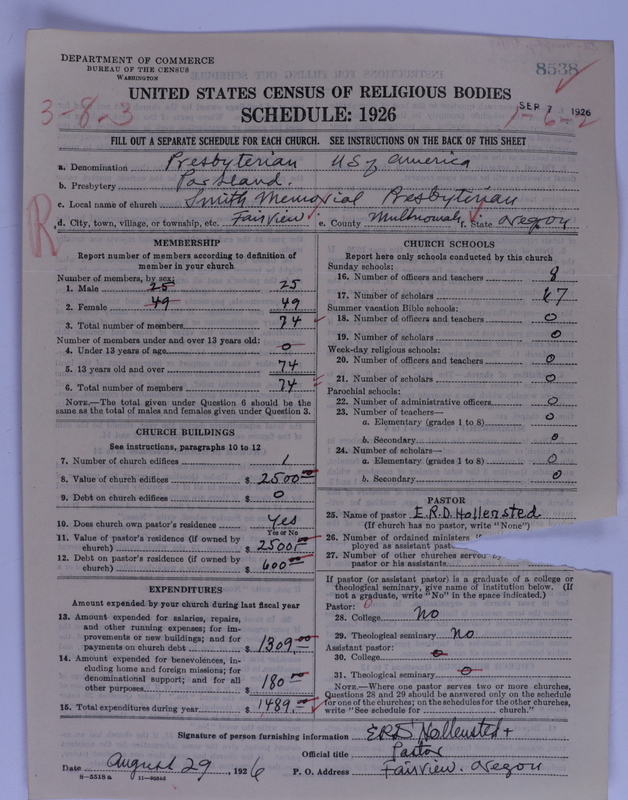 DEPARTMENT OF COMMERCE
BUREAU OF THE CENSUS
WASHINGTON
8538
UNITED STATES CENSUS OF RELIGIOUS BODIES
SCHEDULE: 1926
3-8-3
SEP 7 1926
1-6-2
FILL OUT A SEPARATE SCHEDULE FOR EACH CHURCH. SEE INSTRUCTIONS ON THE BACK OF THIS SHEET
R
a. Denomination Presbyterian US of America
b. Presbytery Portland.
c. Local name of church Smith Memorial Presbyterian
d. City, town, village, or township, etc. Fairview e. County Multnomah f. State Oregon
MEMBERSHIP
Report number of members according to definition of
member in your church
Number of members, by sex:
1. Male 25 25
2. Female 49 49
3. Total number of members 74
Number of members under and over 13 years old:
4. Under 13 years of age 0
5. 13 years old and over 74
6. Total number of members 74
NOTE.—The total given under Question 6 should be the
same as the total of males and females given under Question 3.
CHURCH BUILDINGS
See instructions, paragraphs 10 to 12
7. Number of church edifices 1
8. Value of church edifices $ 2500.00
9. Debt on church edifices $ 0
10. Does church own pastor's residence Yes
Yes or No
11. Value of pastor's residence (if owned by
church) $ 2500.00
12. Debt on pastor's residence (if owned by
church) $ 600.00
EXPENDITURES
Amount expended by your church during last fiscal year
13. Amount expended for salaries, repairs,
and other running expenses; for im-
provements or new buildings; and for
payments on church debt $ 1309.00
14. Amount expended for benevolences, in-
cluding home and foreign missions; for
denominational support; and for all
other purposes $ 180.00
15. Total expenditures during year $ 1489.00
CHURCH SCHOOLS
Report here only schools conducted by this church
Sunday schools:
16. Number of officers and teachers 8
17. Number of scholars 67
Summer vacation Bible schools:
18. Number of officers and teachers 0
19. Number of scholars 0
Week-day religious schools:
20. Number of officers and teachers 0
21. Number of scholars 0
Parochial schools:
22. Number of administrative officers 0
23. Number of teachers—
a. Elementary (grades 1 to 8) 0
b. Secondary 0
24. Number of scholars—
a. Elementary (grades 1 to 8) 0
b. Secondary 0
PASTOR
25. Name of pastor E.R.D. Hollensted
(If church has no pastor, write "None")
26. Number of ordained ministers
ployed as assistant past
27. Number of other churches served by
pastor or his assistants
If pastor (or assistant pastor) is a graduate of a college or
theological seminary, give name of institution below. (If
not a graduate, write "No" in the space indicated.)
Pastor: 0
28. College No
29. Theological seminary No
Assistant pastor:
30. College 0
31. Theological seminary 0
NOTE.—Where one pastor serves two or more churches,
Questions 28 and 29 should be answered only on the schedule
for one of the churches; on the schedules for the other churches,
write "See schedule for church."
Signature of person furnishing information E.R.D. Hollensted
Official title Pastor
Date August 29, 1926 P. O. Address Fairview. Oregon
8—5518 a